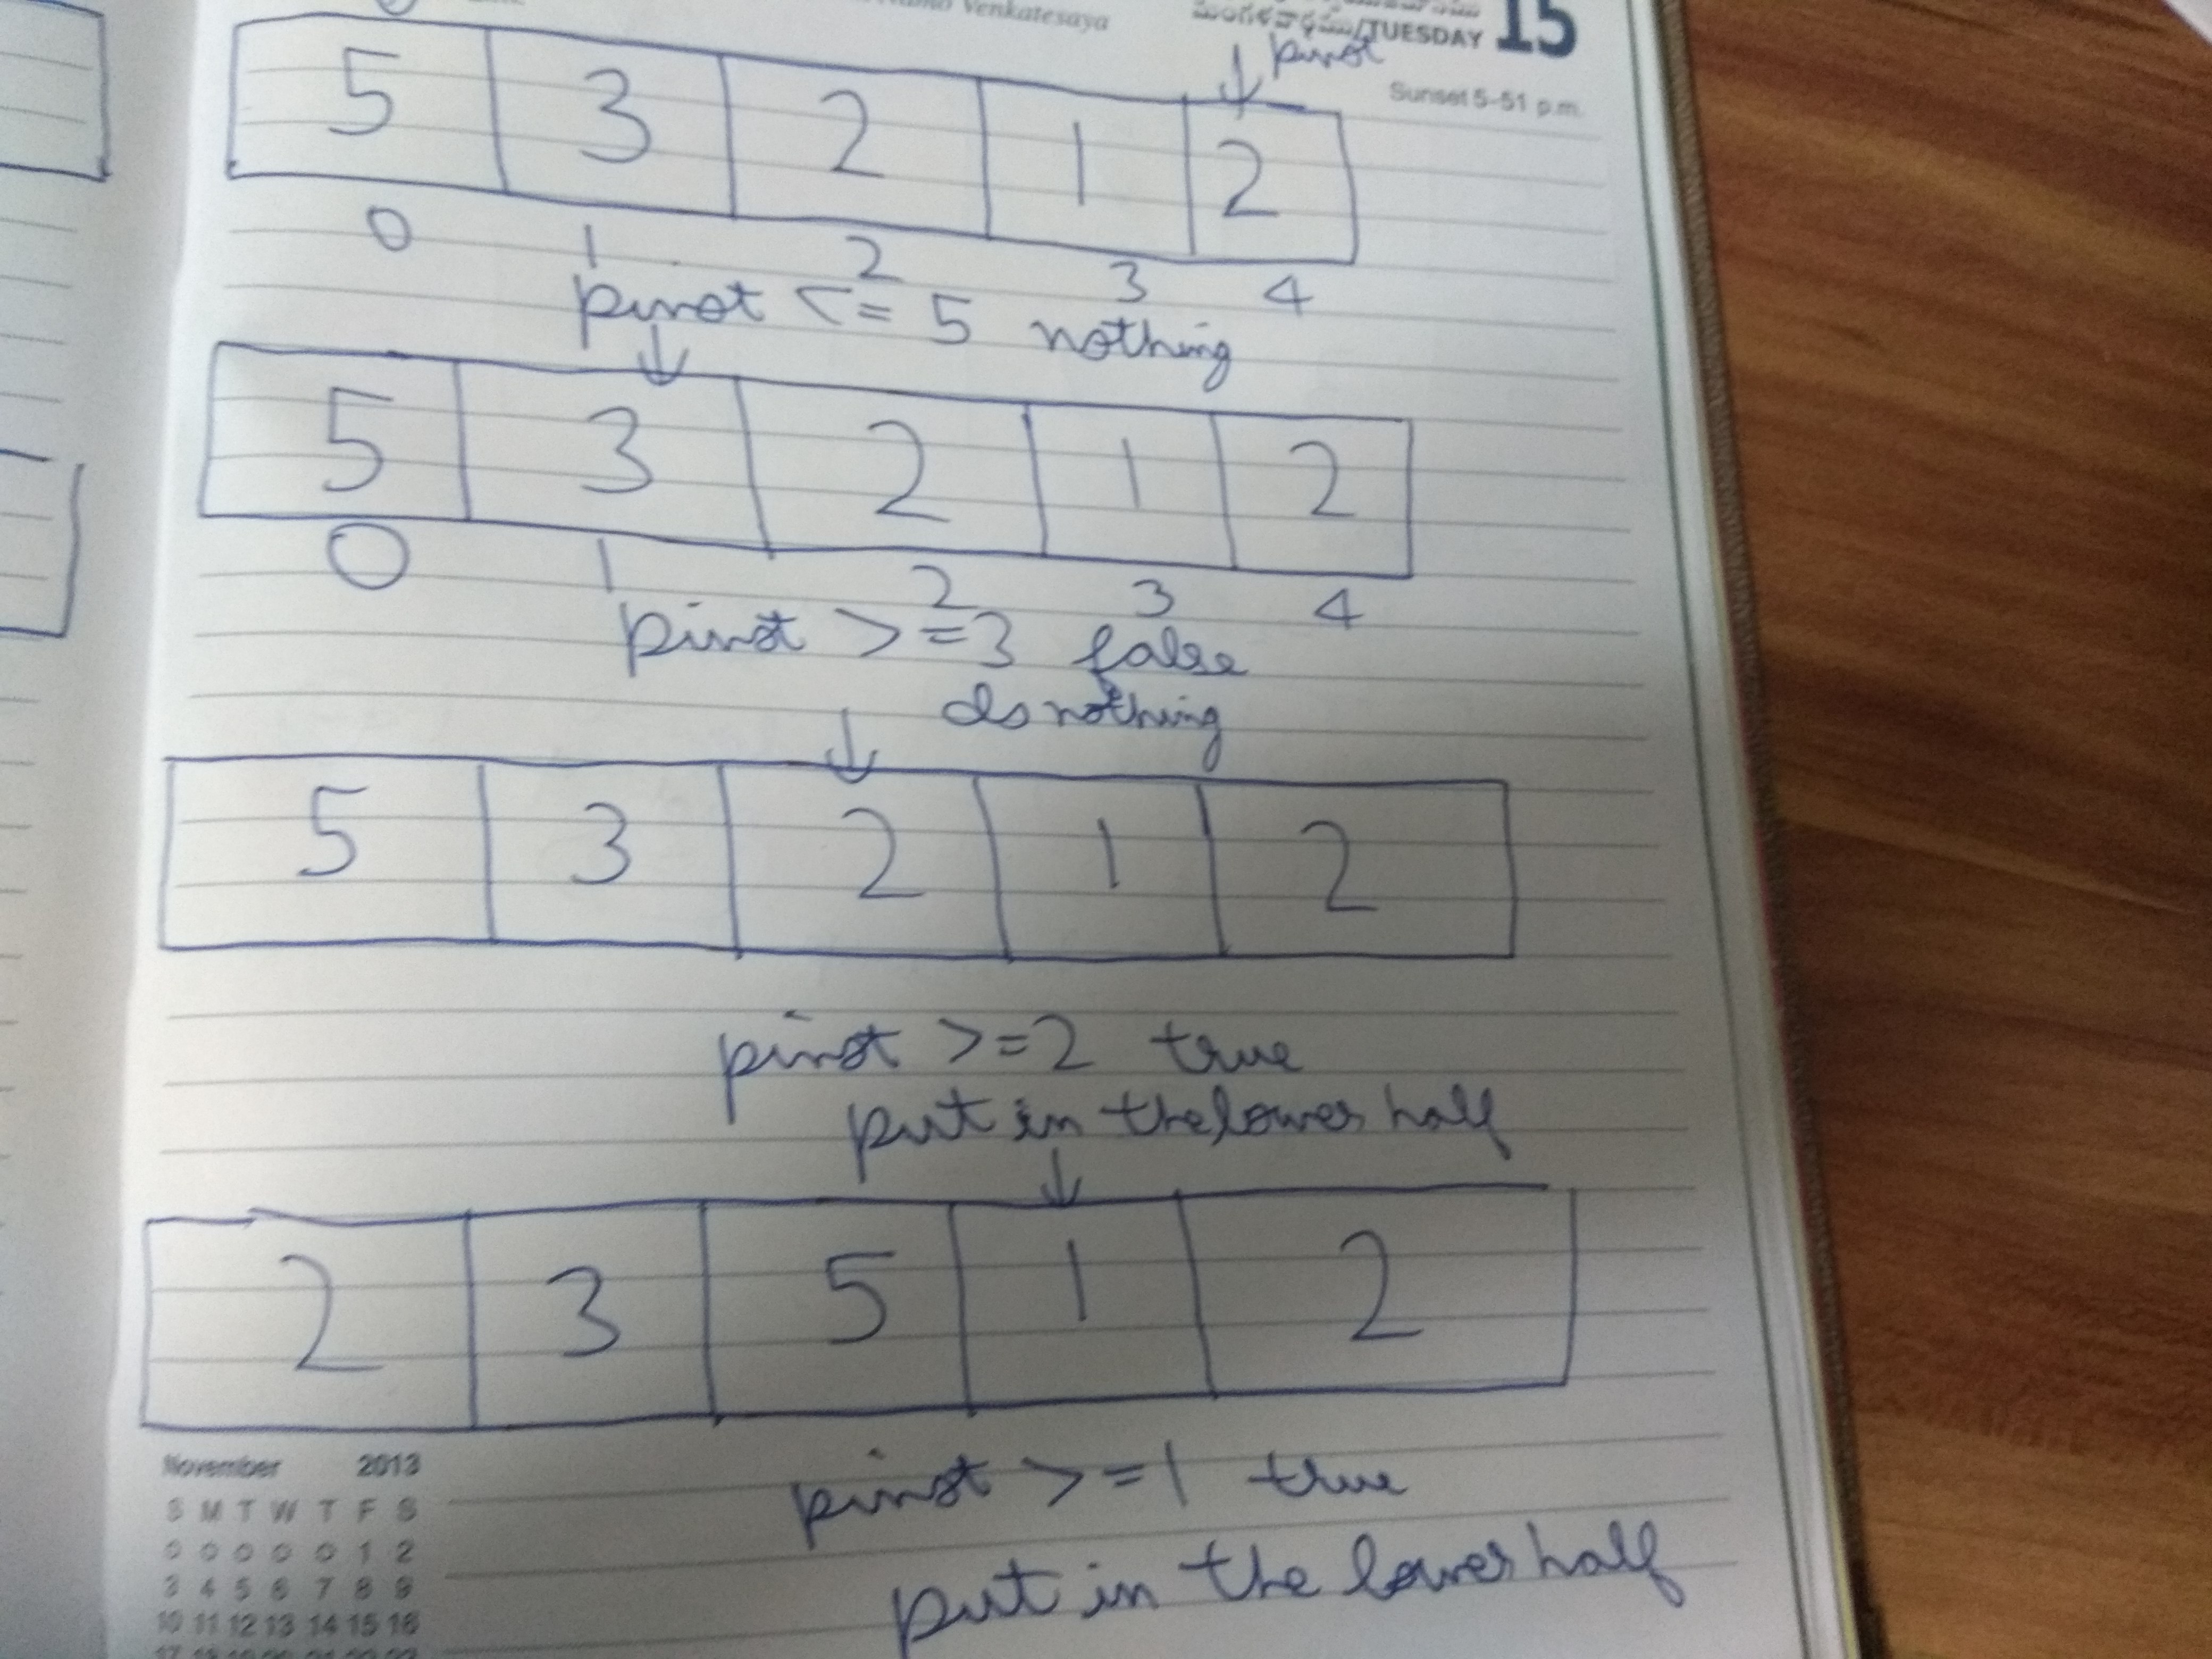 Venkatesaya
/TUESDAY 15
pivot
Sunset 5-51 p.m.
5 3 2 1 2
0 1 2 3 4
pivot <= 5 nothing
5 3 2 1 2
0 1 2 3 4
pivot >= 3 false
do nothing
5 3 2 1 2
pivot >= 2 true
put in the lower half
2 3 5 1 2
pivot >= 1 true
put in the lower half
November 2013
S M T W T F S
0 0 0 0 0 1 2
3 4 5 6 7 8 9
10 11 12 13 14 15 16